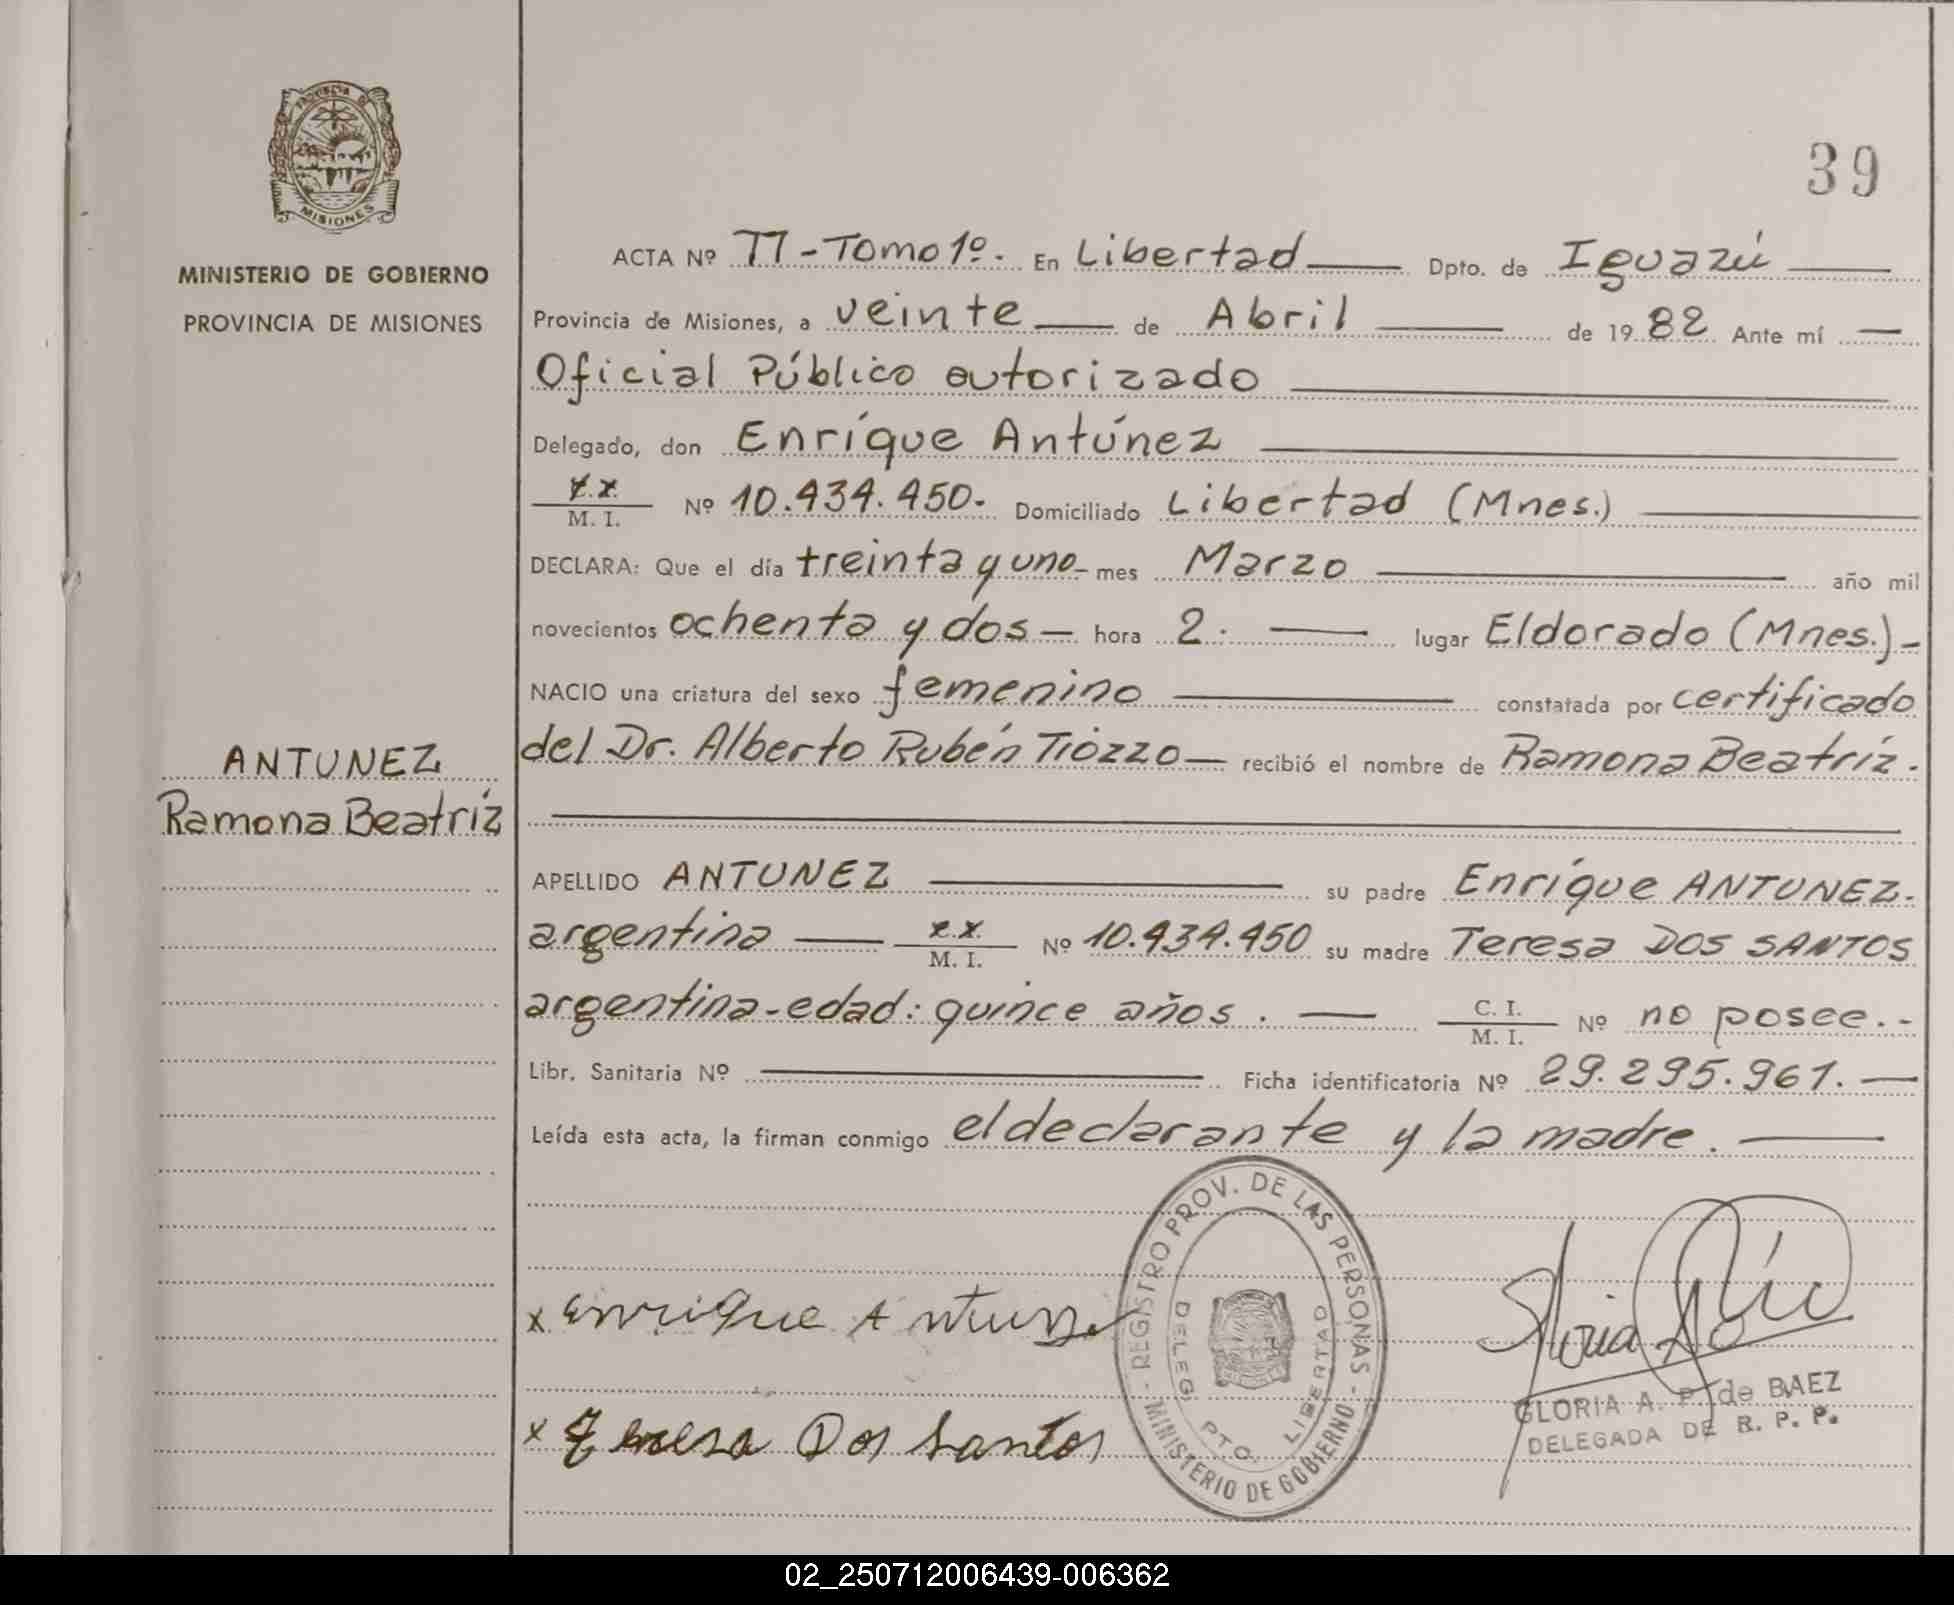 39
PROVINCIA DE
MISIONES
MINISTERIO DE GOBIERNO
PROVINCIA DE MISIONES
ANTUNEZ
Ramona Beatríz
ACTA Nº 77 - Tomo 1º. En Libertad Dpto. de Iguazú
Provincia de Misiones, a veinte de Abril de 1982 Ante mí
Oficial Público autorizado
Delegado, don Enríque Antúnez
M. I. Nº 10.434.450.- Domiciliado Libertad (Mnes.)
DECLARA: Que el día treinta y uno- mes Marzo año mil
novecientos ochenta y dos - hora 2. lugar Eldorado (Mnes.)-
NACIO una criatura del sexo femenino constatada por certificado
del Dr. Alberto Rubén Tiózzo recibió el nombre de Ramona Beatríz.
APELLIDO ANTUNEZ su padre Enríque ANTUNEZ.
argentina M. I. Nº 10.434.450 su madre Teresa DOS SANTOS
argentina-edad: quince años. C. I. M. I. Nº no posee.-
Libr. Sanitaria Nº Ficha identificatoria Nº 29.295.961.
Leída esta acta, la firman conmigo el declarante y la madre.
x Enrique Antunez
x Teresa Dos Santos
- REGISTRO PROV. DE LAS PERSONAS - MINISTERIO DE GOBIERNO
DELEG. PTO. LIBERTAD
GLORIA A. P. de BAEZ
DELEGADA DE R. P. P.
02_250712006439-006362